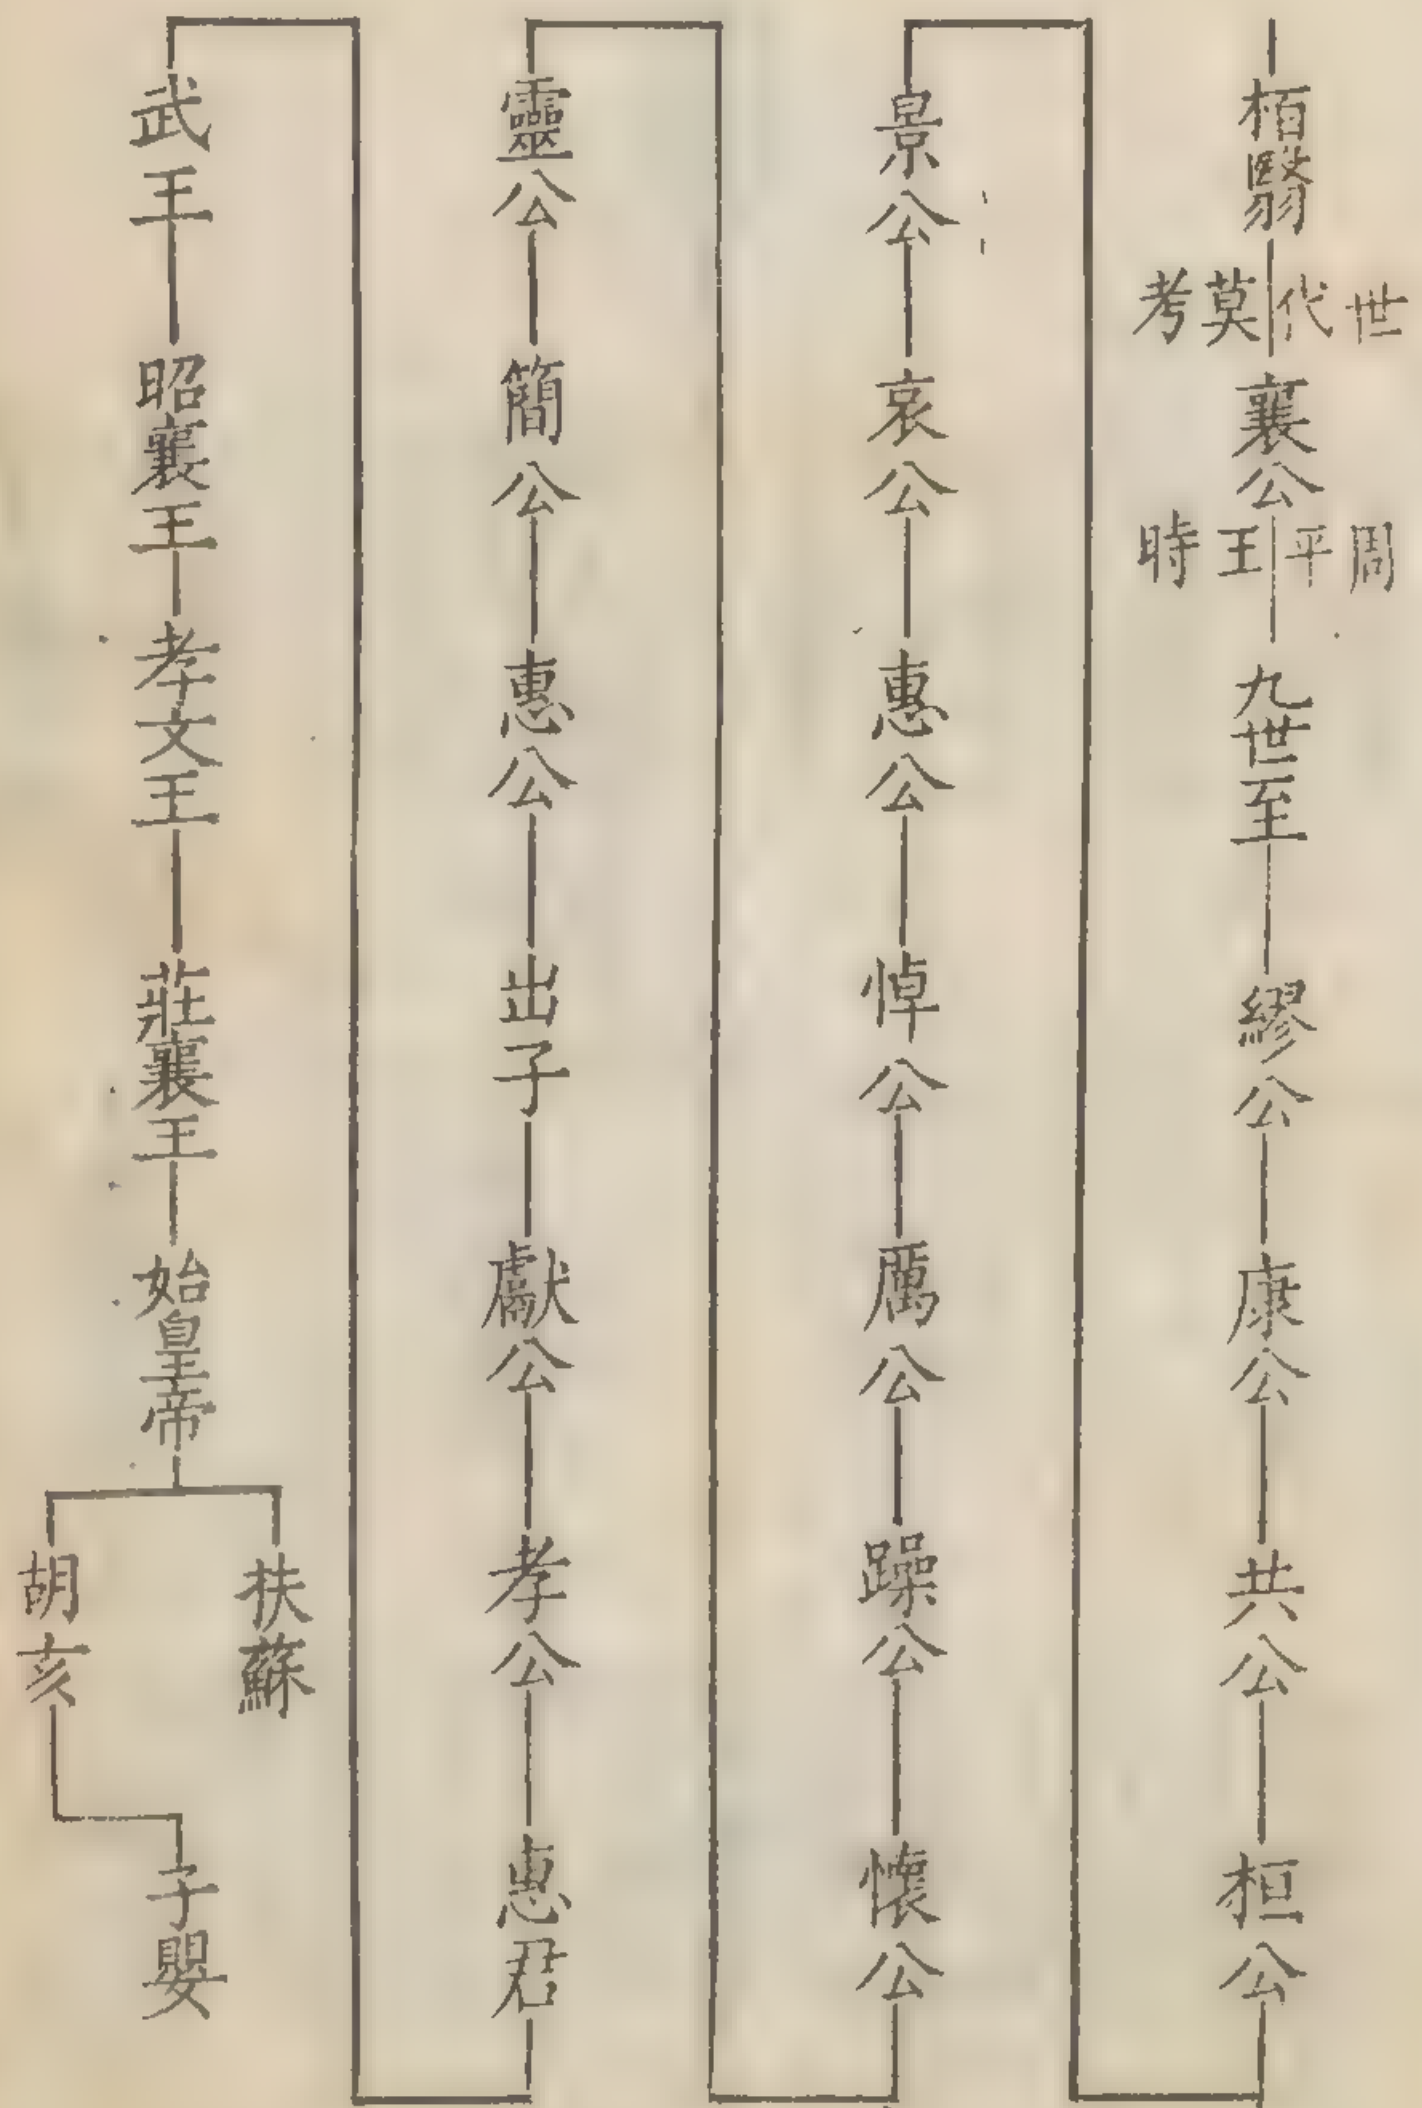 栢翳
世代莫考
襄公
周平王時
九世至
繆公
康公
共公
桓公
景公
哀公
惠公
悼公
厲公
躁公
懷公
靈公
簡公
惠公
出子
獻公
孝公
惠君
武王
昭襄王
孝文王
莊襄王
始皇帝
扶蘇
胡亥
子嬰